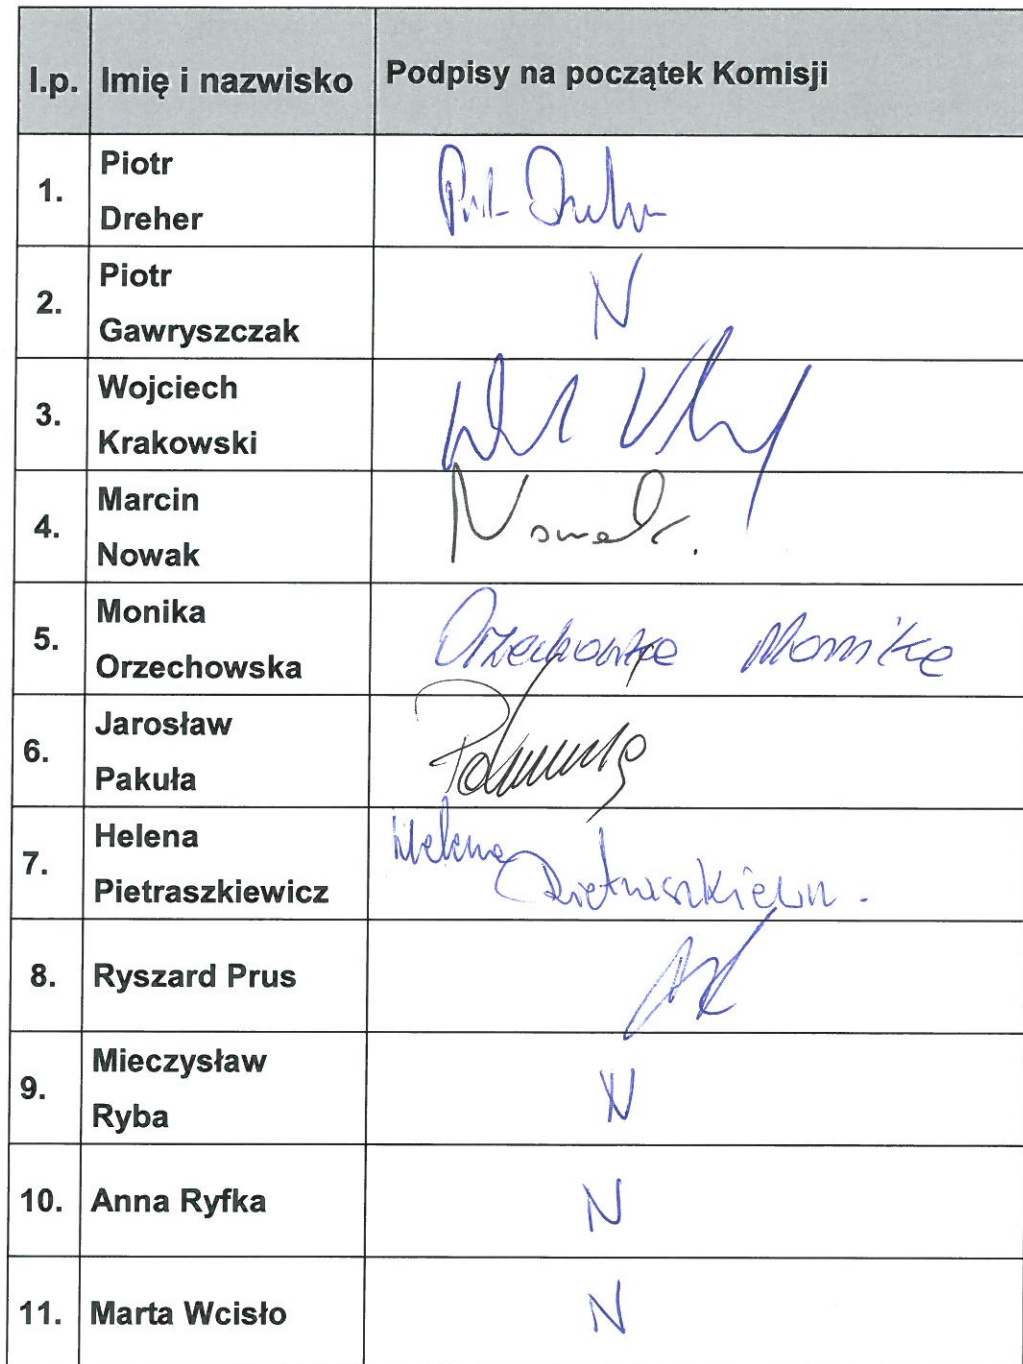 l.p. Imię i nazwisko Podpisy na początek Komisji
1. Piotr
Dreher
2. Piotr N
Gawryszczak
3. Wojciech
Krakowski
4. Marcin Nowak.
Nowak
5. Monika Orzechowska Monika
Orzechowska
6. Jarosław
Pakuła
7. Helena Helena
Pietraszkiewicz Pietraszkiewicz.
8. Ryszard Prus
9. Mieczysław N
Ryba
10. Anna Ryfka N
11. Marta Wcisło N